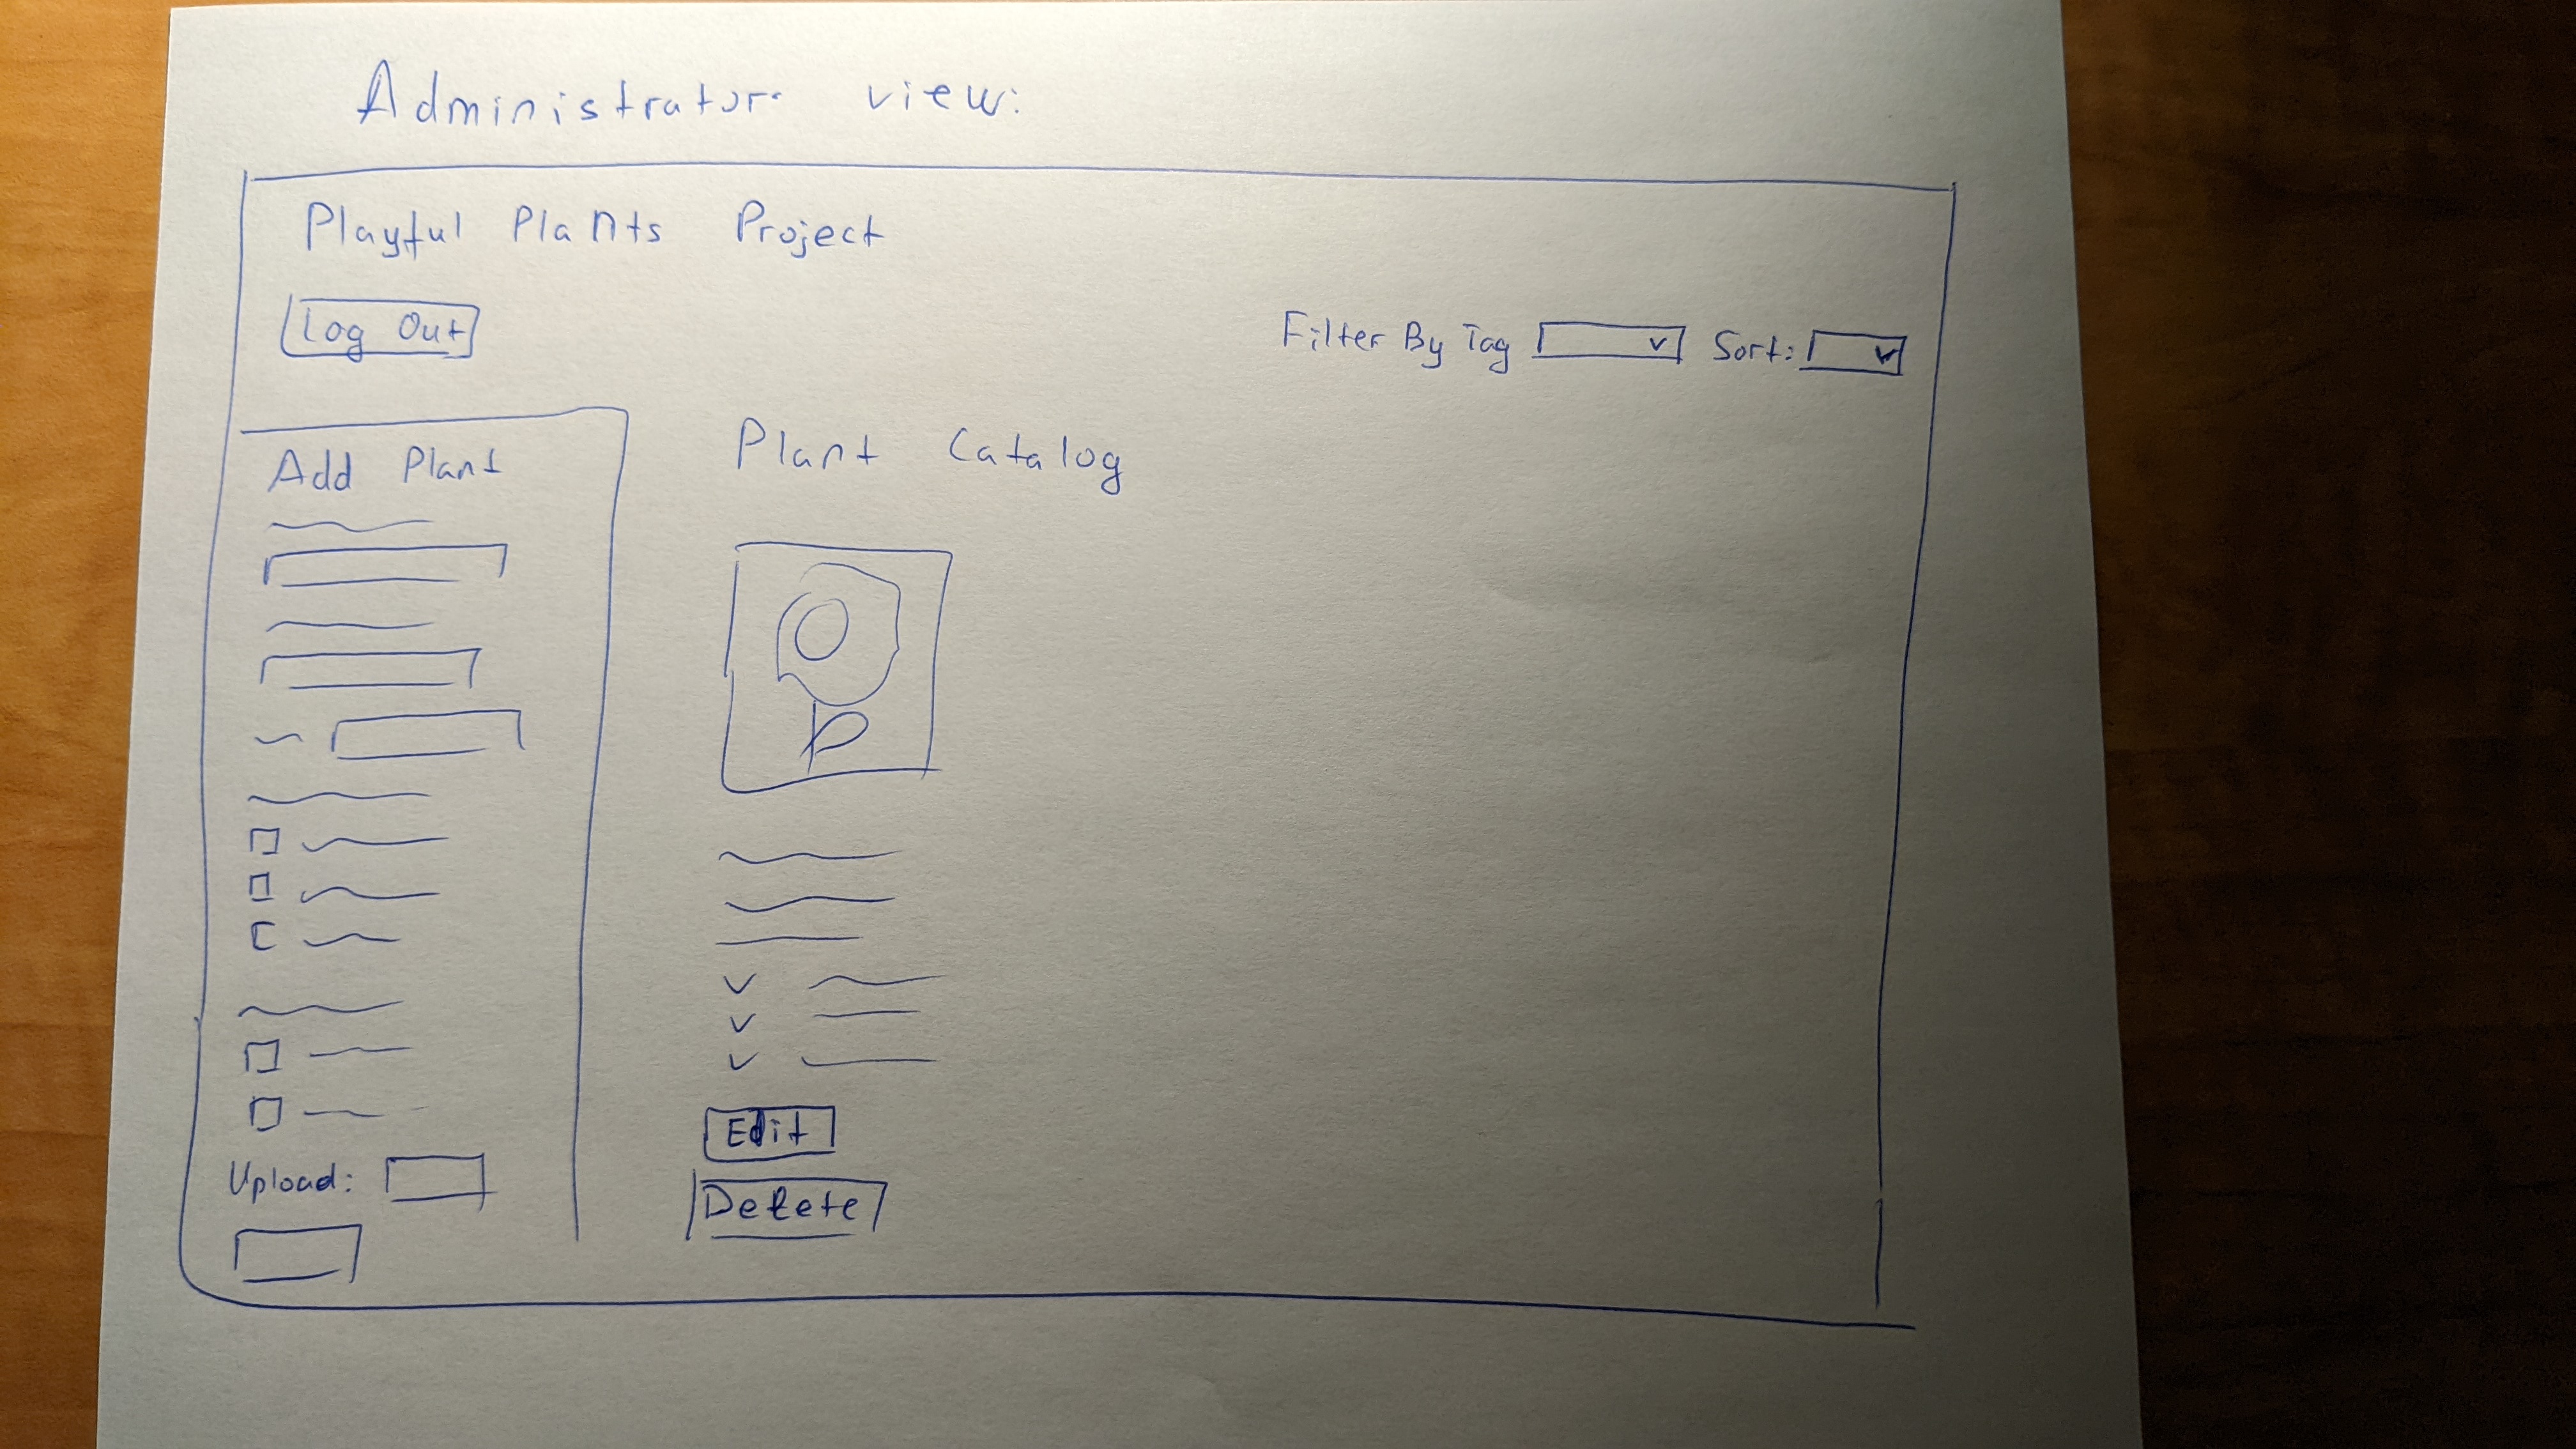 Administrator view:
Playful Plants Project
Log Out
Filter By Tag Sort:
Add Plant
Plant Catalog
Edit
Delete
Upload: